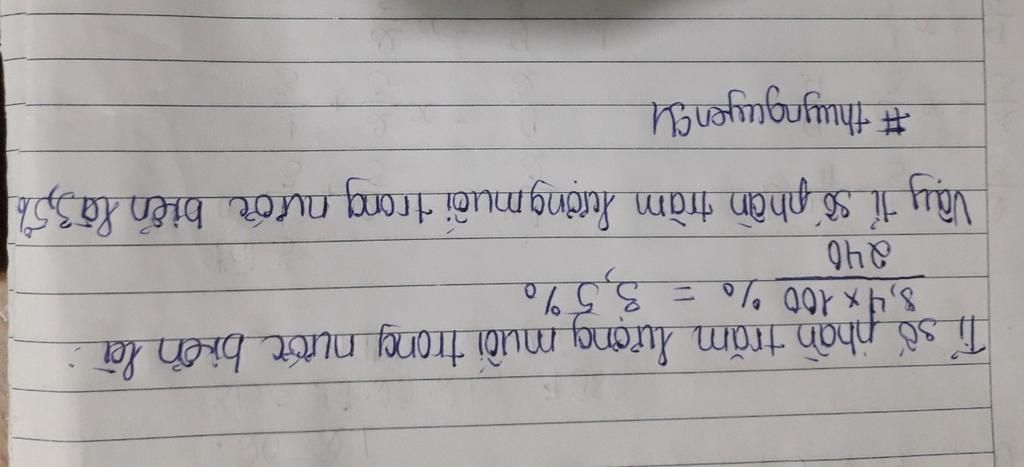 Tỉ số phần trăm lượng muối trong nước biển là:
8,4 x 100 % = 3,5%
240
Vậy tỉ số phần trăm lượng muối trong nước biển là 3,5%
#thuynguyenSU